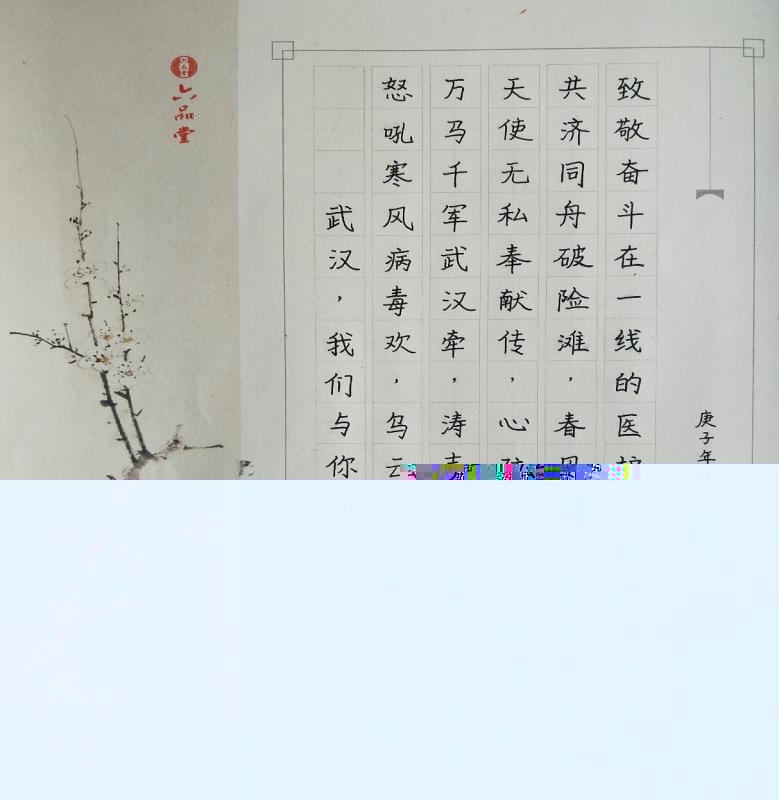 六品堂
六品堂
庚子年
致敬奋斗在一线的医
共济同舟破险滩，春
天使无私奉献传，心
万马千军武汉牵，涛
怒吼寒风病毒欢，乌云
武汉，我们与你